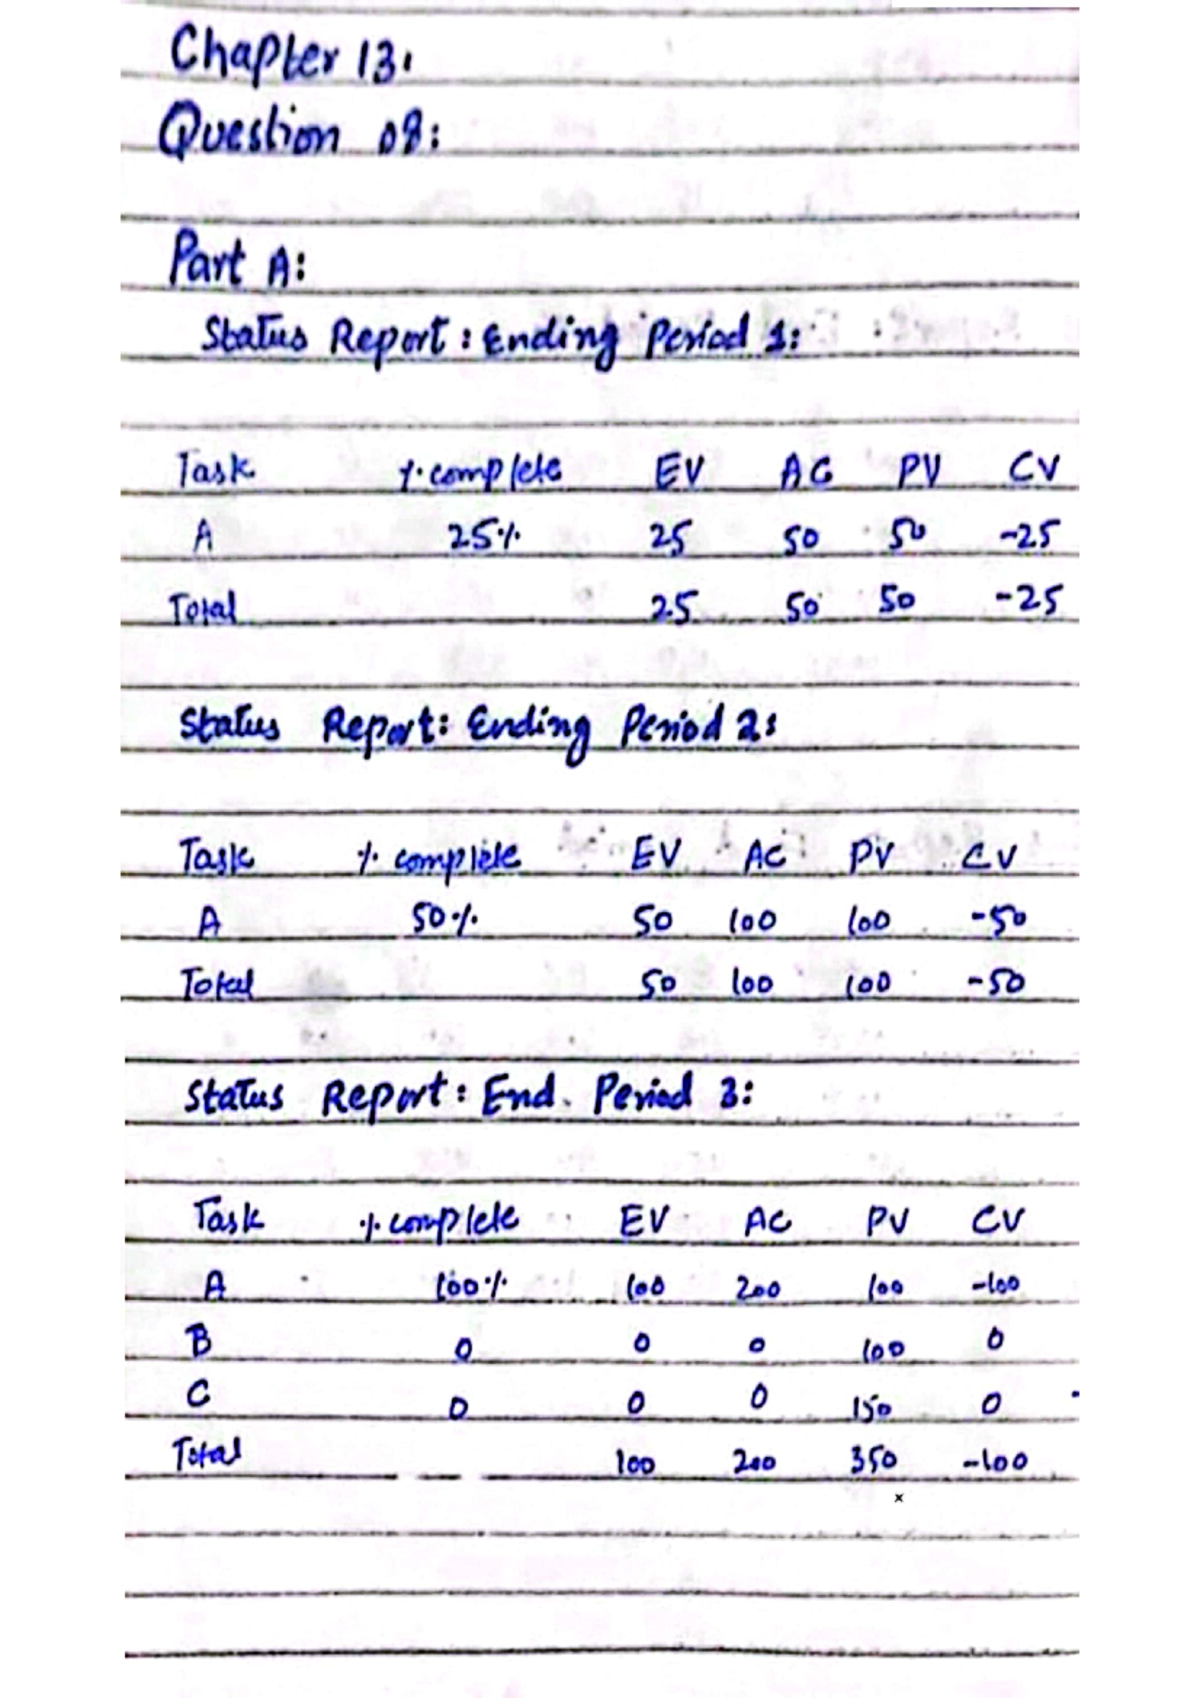 Chapter 13:
Question 08:
Part A:
Status Report: Ending Period 1:
Task % complete EV AC PV CV
A 25% 25 50 50 -25
Total 25 50 50 -25
Status Report: Ending Period 2:
Task % complete EV AC PV CV
A 50% 50 100 100 -50
Total 50 100 100 -50
Status Report: End. Period 3:
Task % complete EV AC PV CV
A 100% 100 200 100 -100
B 0 0 0 100 0
C 0 0 0 150 0
Total 100 200 350 -100
x